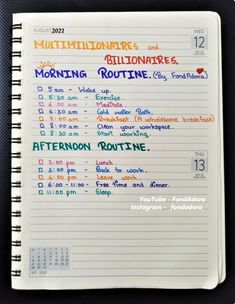 AUGUST 2021
WED
12
MULTIMILLIONAIRES and
BILLIONAIRES.
MORNING ROUTINE. (By FondAdora)
5 am - Wake up.
5:30 am - Exercise.
6:00 am - Meditate
6:30 am - Cold water Bath.
am - Breakfast (A wholesome breakfast)
8:00 am - Clean your workspace.
8:30 am - Start working.
AFTERNOON ROUTINE.
THU
13
pm - Lunch
pm - Back to work.
6:00 pm - Leave work.
6:00 - 11:00 - Free time and dinner.
11:00 pm - Sleep.
YouTube - FondAdora
Instagram - _fondadora_